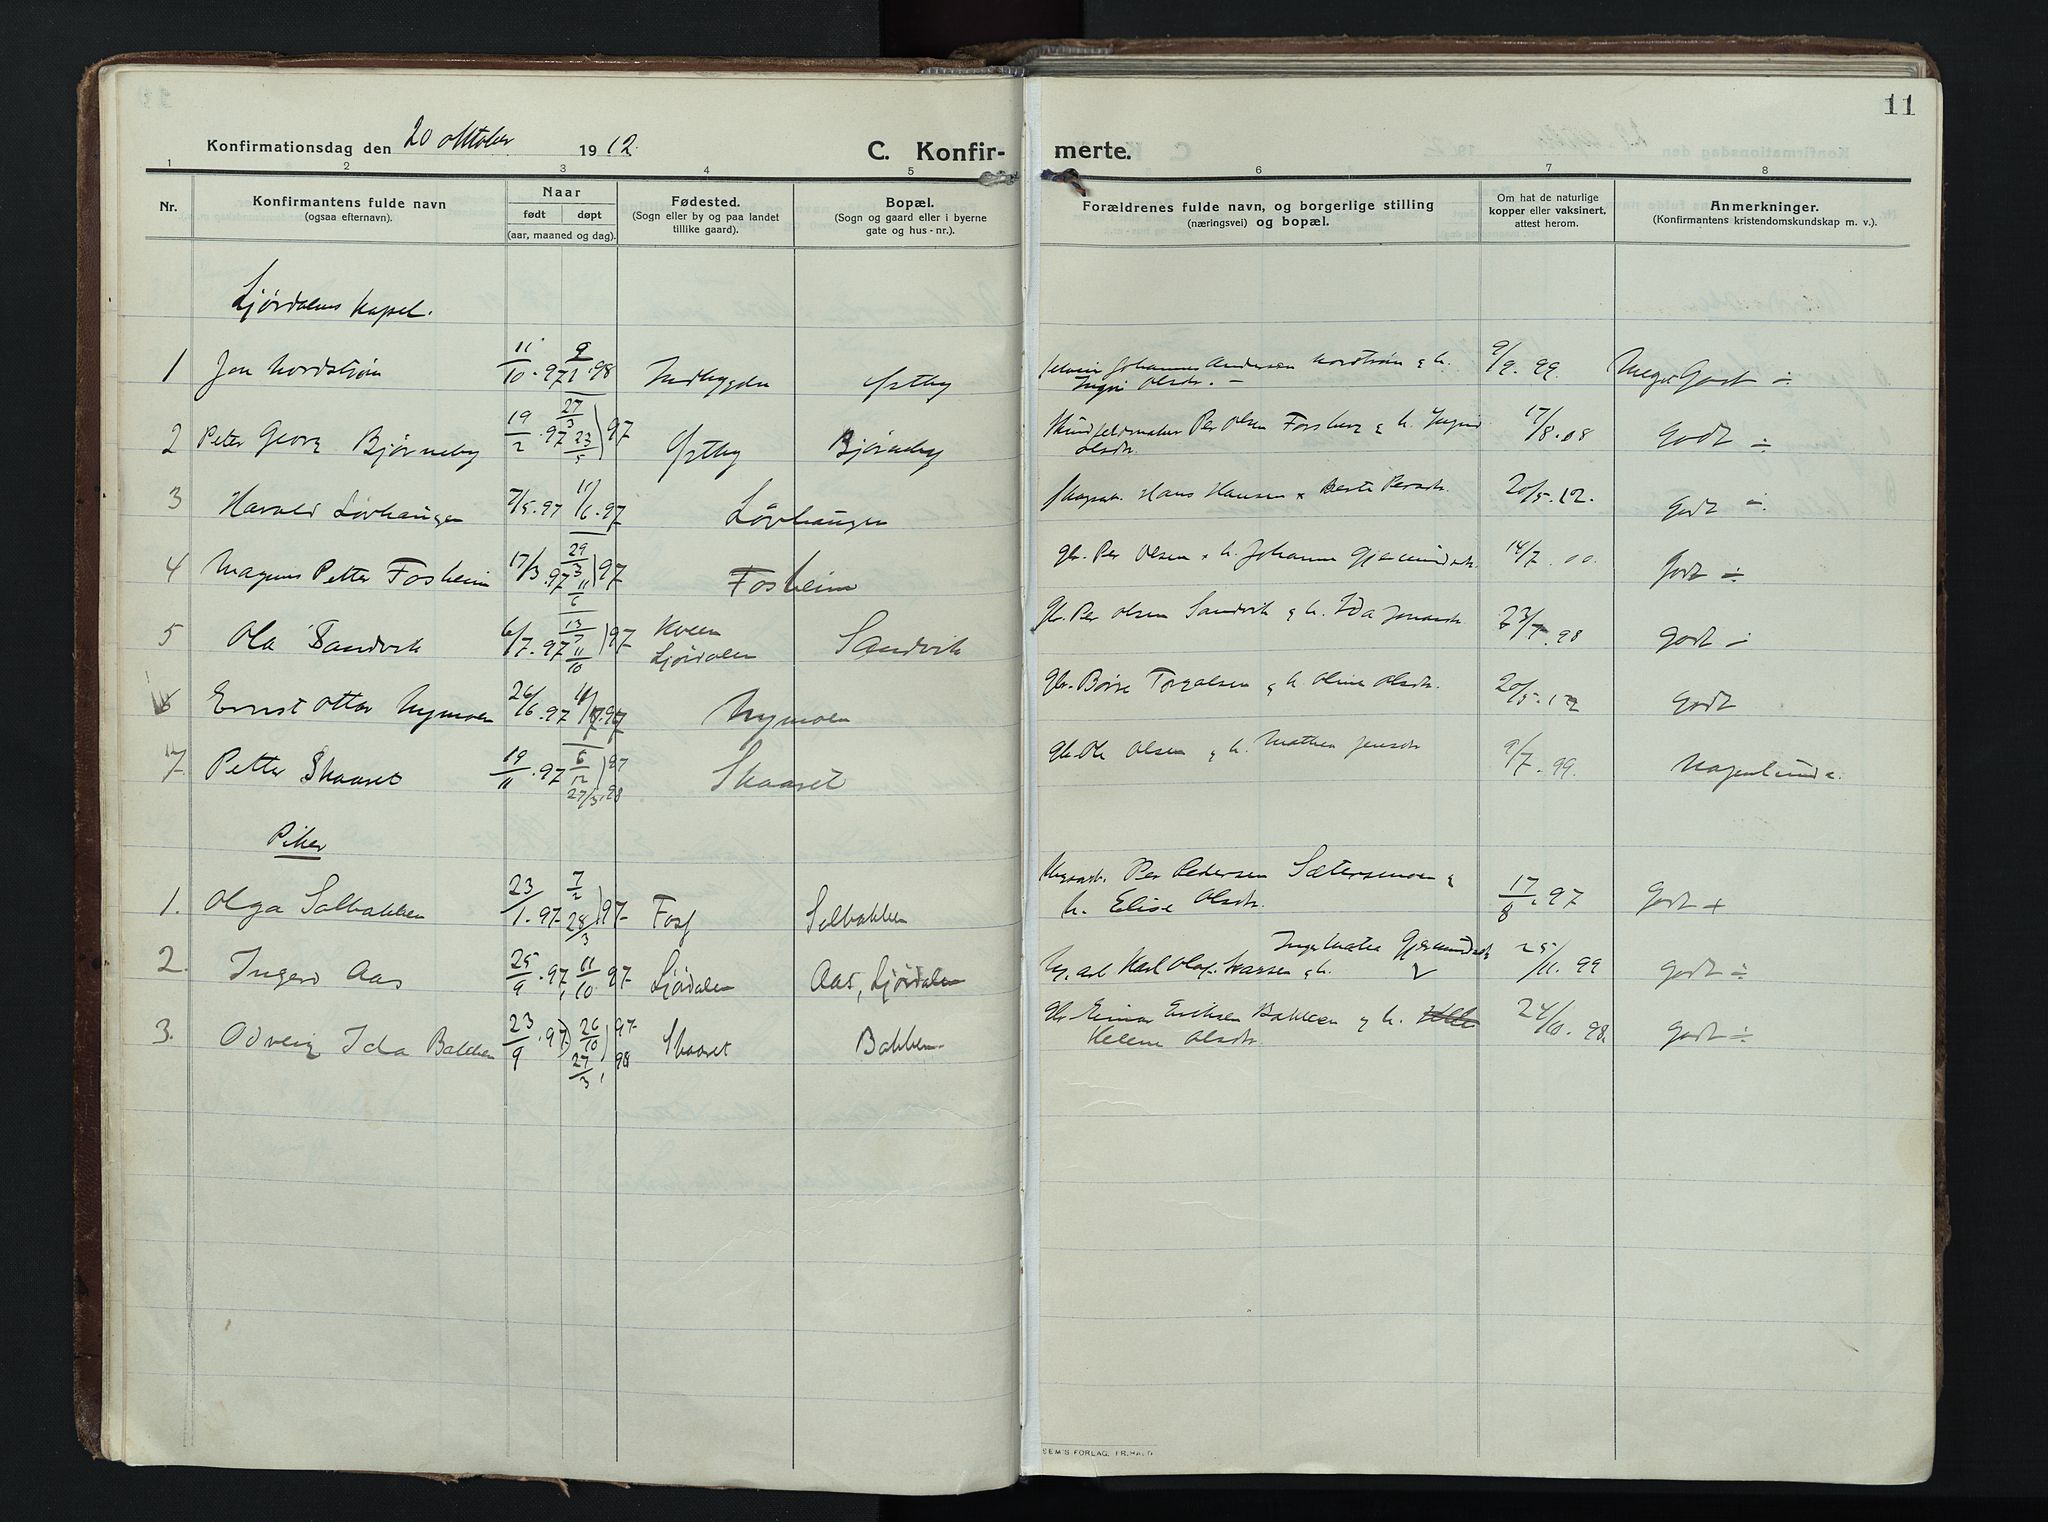 11
Konfirmationsdag den 20 oktober 1912.
C. Konfir-merte.
1 2 3 4 5 6 7 8
Nr.
Konfirmantens fulde navn
(ogsaa efternavn).
Naar
født døpt
(aar, maaned og dag).
Fødested.
(Sogn eller by og paa landet
tillike gaard).
Bopæl.
(Sogn og gaard eller i byerne
gate og hus-nr.).
Forældrenes fulde navn, og borgerlige stilling
(næringsvei) og bopæl.
Om hat de naturlige
kopper eller vaksinert,
attest herom.
Anmerkninger.
(Konfirmantens kristendomskundskap m. v.).
Ljørdalens kapel.
1 Jon Nordstrøm 11/10.97 9/1.98 Indbygden Østby Johannes Andersen Nordstrøm & h. 9/9.99 Meget Godt ÷
Ingri Olsdr. –
2 Peter Georg Bjørneby 19/2.97 27/3 23/5 97 Østby Bjørneby Per Olsen Forsberg & h. Ingrid 17/8.08 Godt ÷
Olsdtr.
3 Harald Løvhaugen 7/5.97 11/6.97 Løvhaugen Skogsarb. Hans Hansen & Berte Persdtr. 20/5.12. Godt ÷
4 Magnus Petter Fosheim 17/3.97 29/3 11/6 97 Fosheim gbr. Per Olsen & h. Johanne Gjermundsdtr. 14/7.00. Godt ÷
5 Ola Sandvik 6/7.97 13/7 11/10 97 Kveen Ljørdalen Sandvik Gbr. Per Olsen Sandvik & h. Ida Jonasdtr. 23/7.98 Godt ÷
6 Ernst Ottar Nymoen 26/6.97 Nymoen Gbr. Børre Torgalsen & h. Oline Olsdtr. 20/5.12 Godt
7 Petter Skaaret 19/11.97 6/12 97 27/3.98 Skaaret Gbr. Ole Olsen & h. Mathea Jensdtr 9/7.99.
Piker
1. Olga Solbakken 23/1.97 7/2 28/3 97 Fos Solbakken Per Pedersen Sætersmoen & 17/8.97 Godt +
h. Elise Olsdtr.
2. Ingerd Aas 25/9.97 11/10 97 Ljørdalen Aas, Ljørdalen Inger Mathea Gjermundsdtr 25/11.99 Godt ÷
arb Karl Olaf & h. V
3. Oddveig Ida Bakken 23/9.97 26/10 97 27/3 98 Skaaret Bakken Gbr Einar Eriksen Bakken & h. 24/10.98. Godt ÷
Helene Olsdtr.
SEM'S FORLAG, FR.HALD